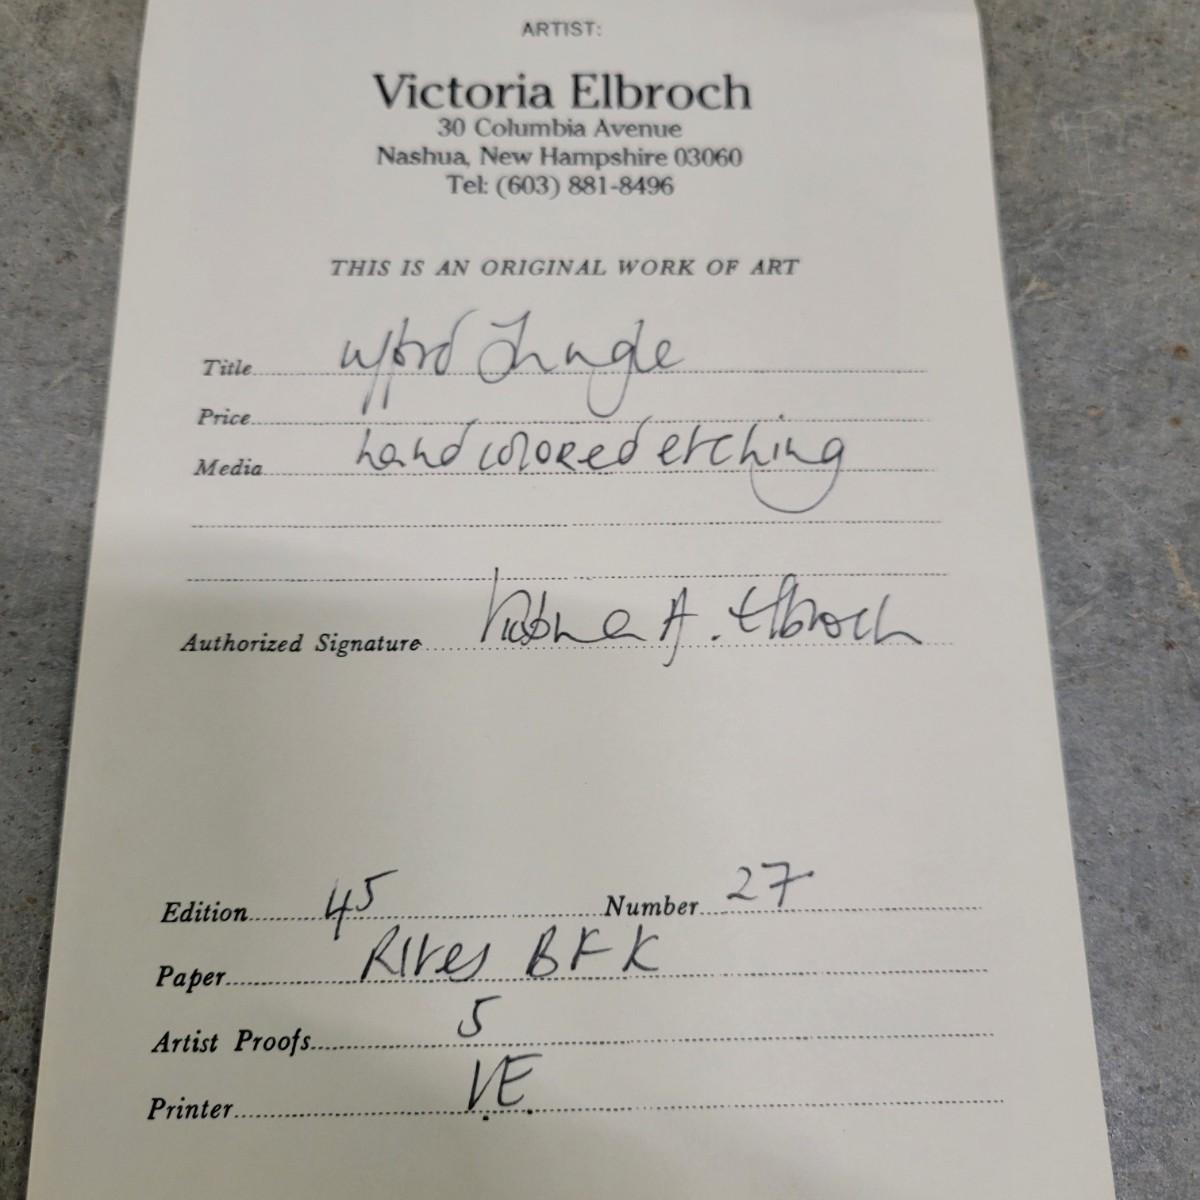 ARTIST:
Victoria Elbroch
30 Columbia Avenue
Nashua, New Hampshire 03060
Tel: (603) 881-8496
THIS IS AN ORIGINAL WORK OF ART
Title Jungle
Price
Media hand colored etching
Authorized Signature Victoria A. Elbroch
Edition 45 Number 27
Paper Rives BFK
Artist Proofs 5
Printer V.E.